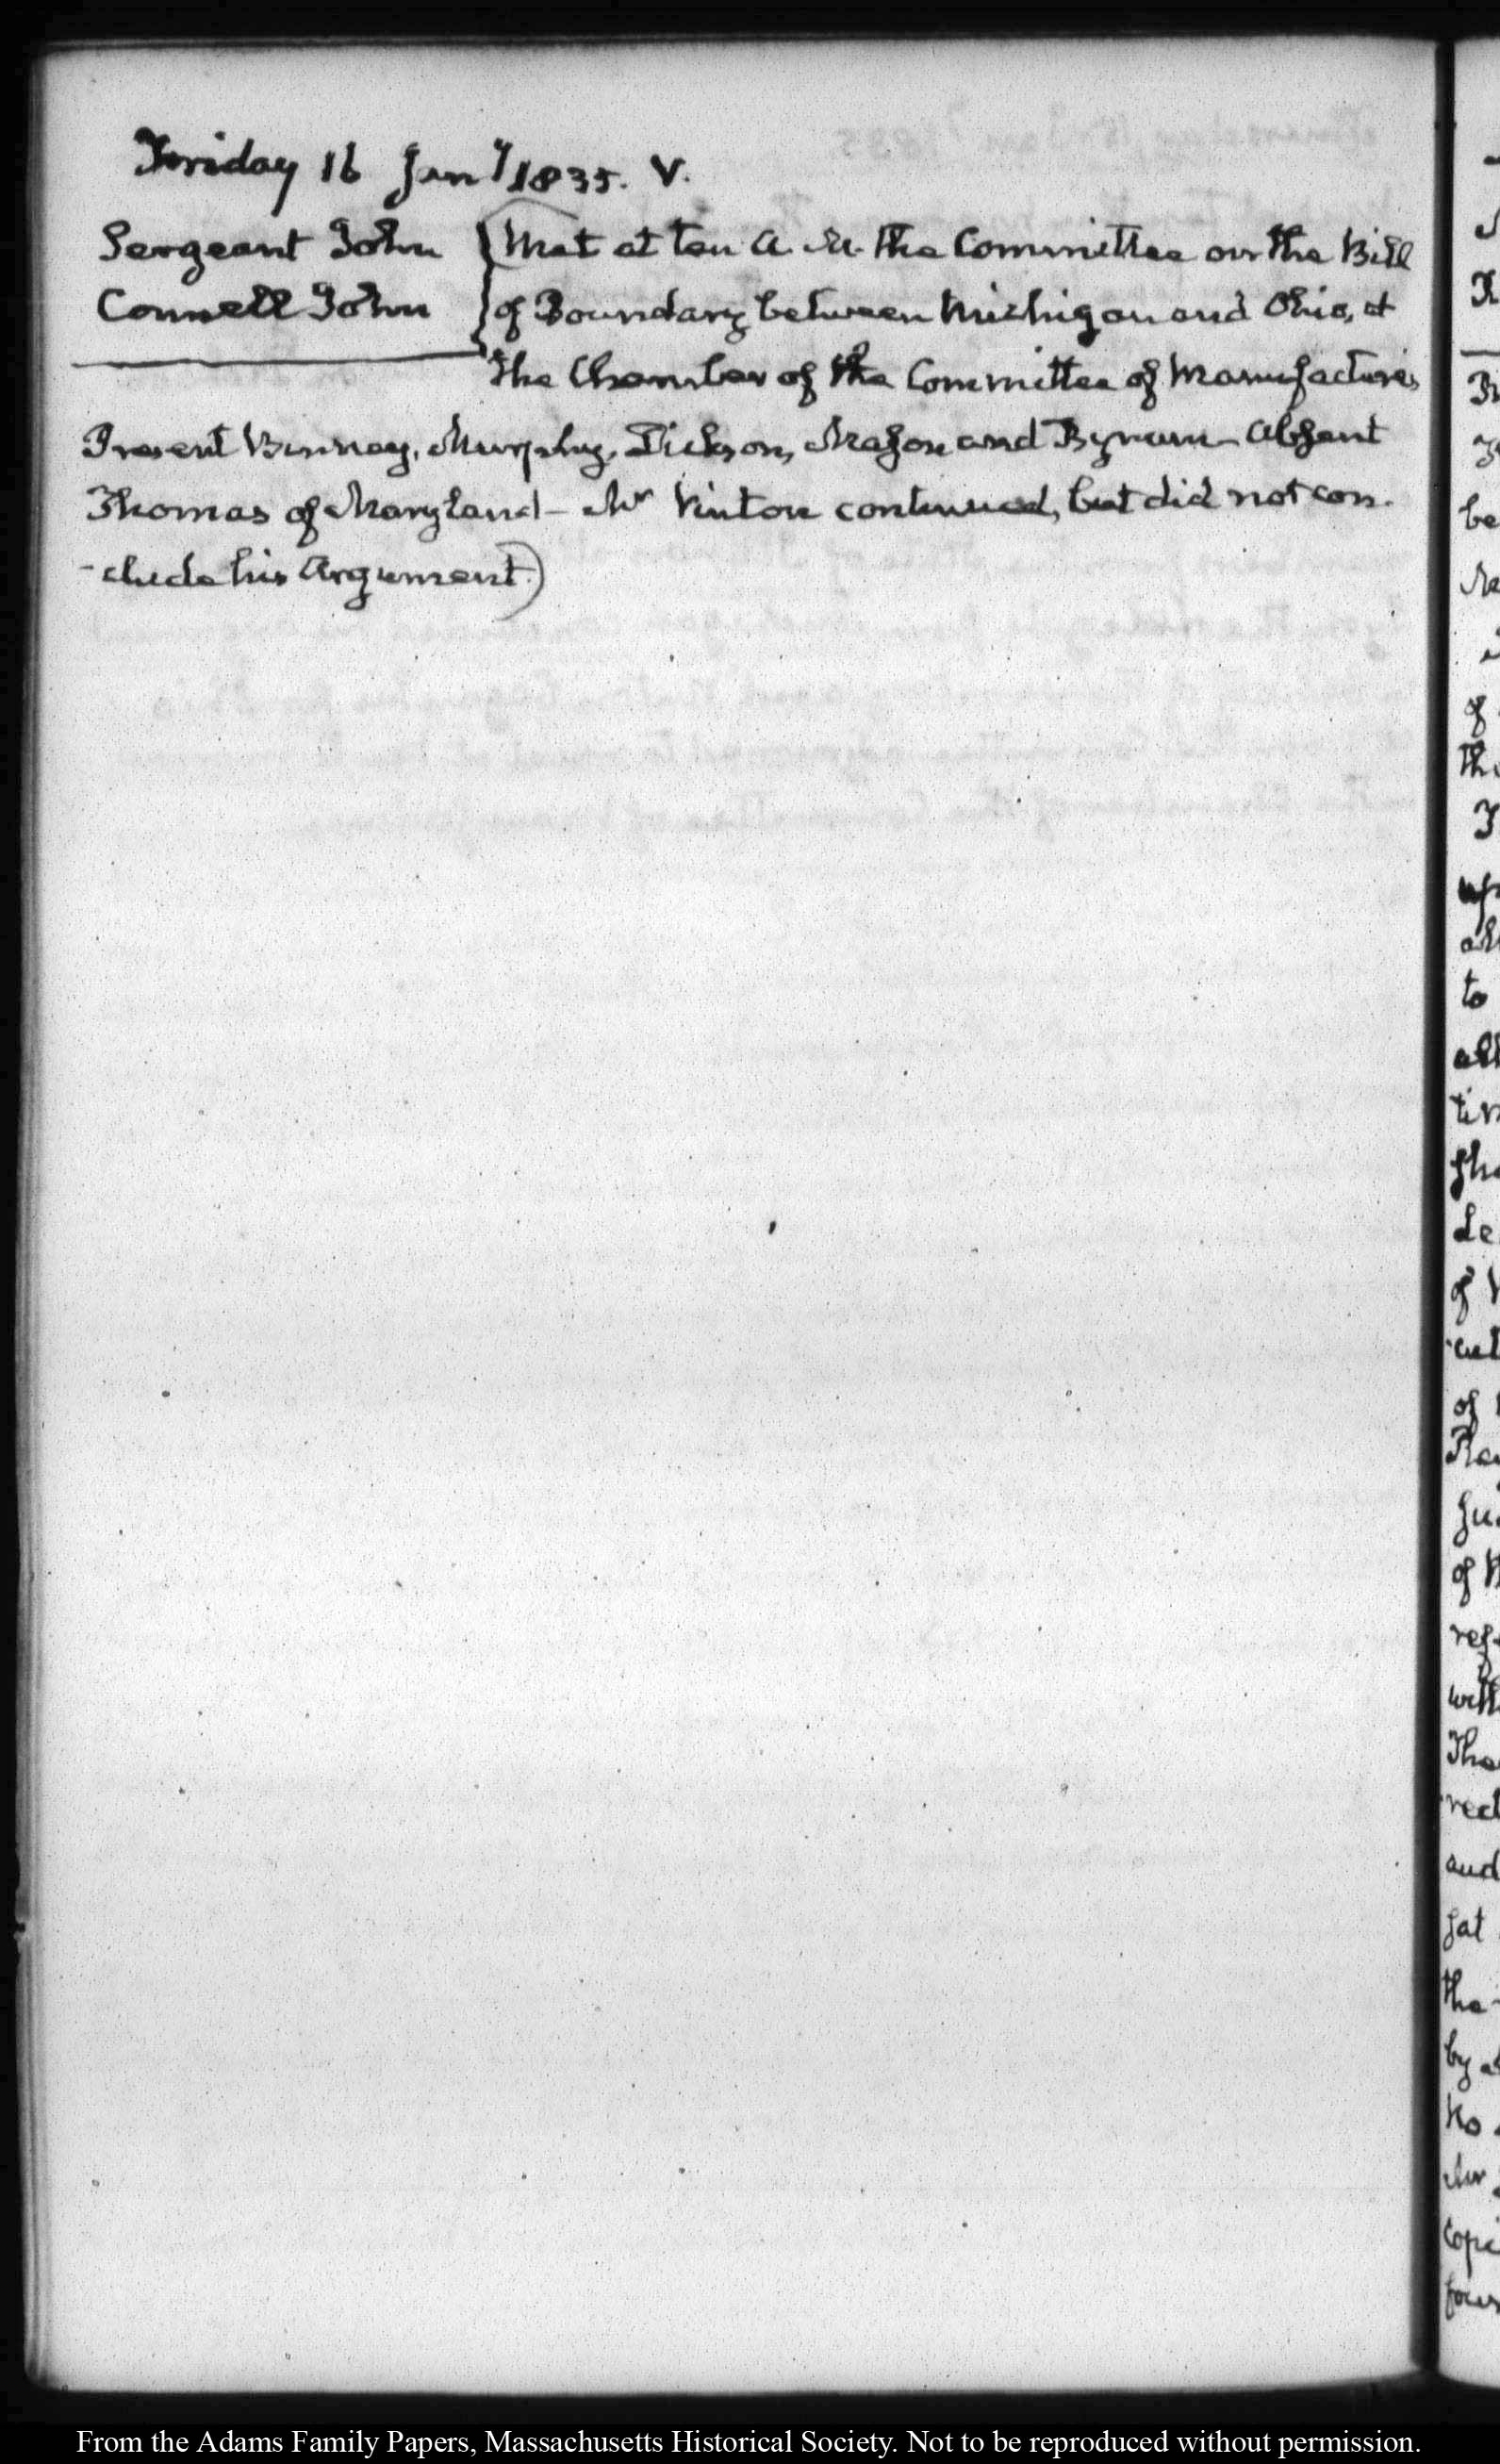 Friday 16 Jany 1835. V.
Sergeant John
Connell John
(Met at ten A. M. the Committee on the Bill
of Boundary between Michigan and Ohio, at
the Chamber of the Committee of Manufactures
Present Binney, Murphy, Dickson, Mason and Bynum - Absent
Thomas of Maryland - Mr Vinton continued, but did not con-
-clude his Argument.)
be
of
to
of
of
and
sat
the
by
From the Adams Family Papers, Massachusetts Historical Society. Not to be reproduced without permission.